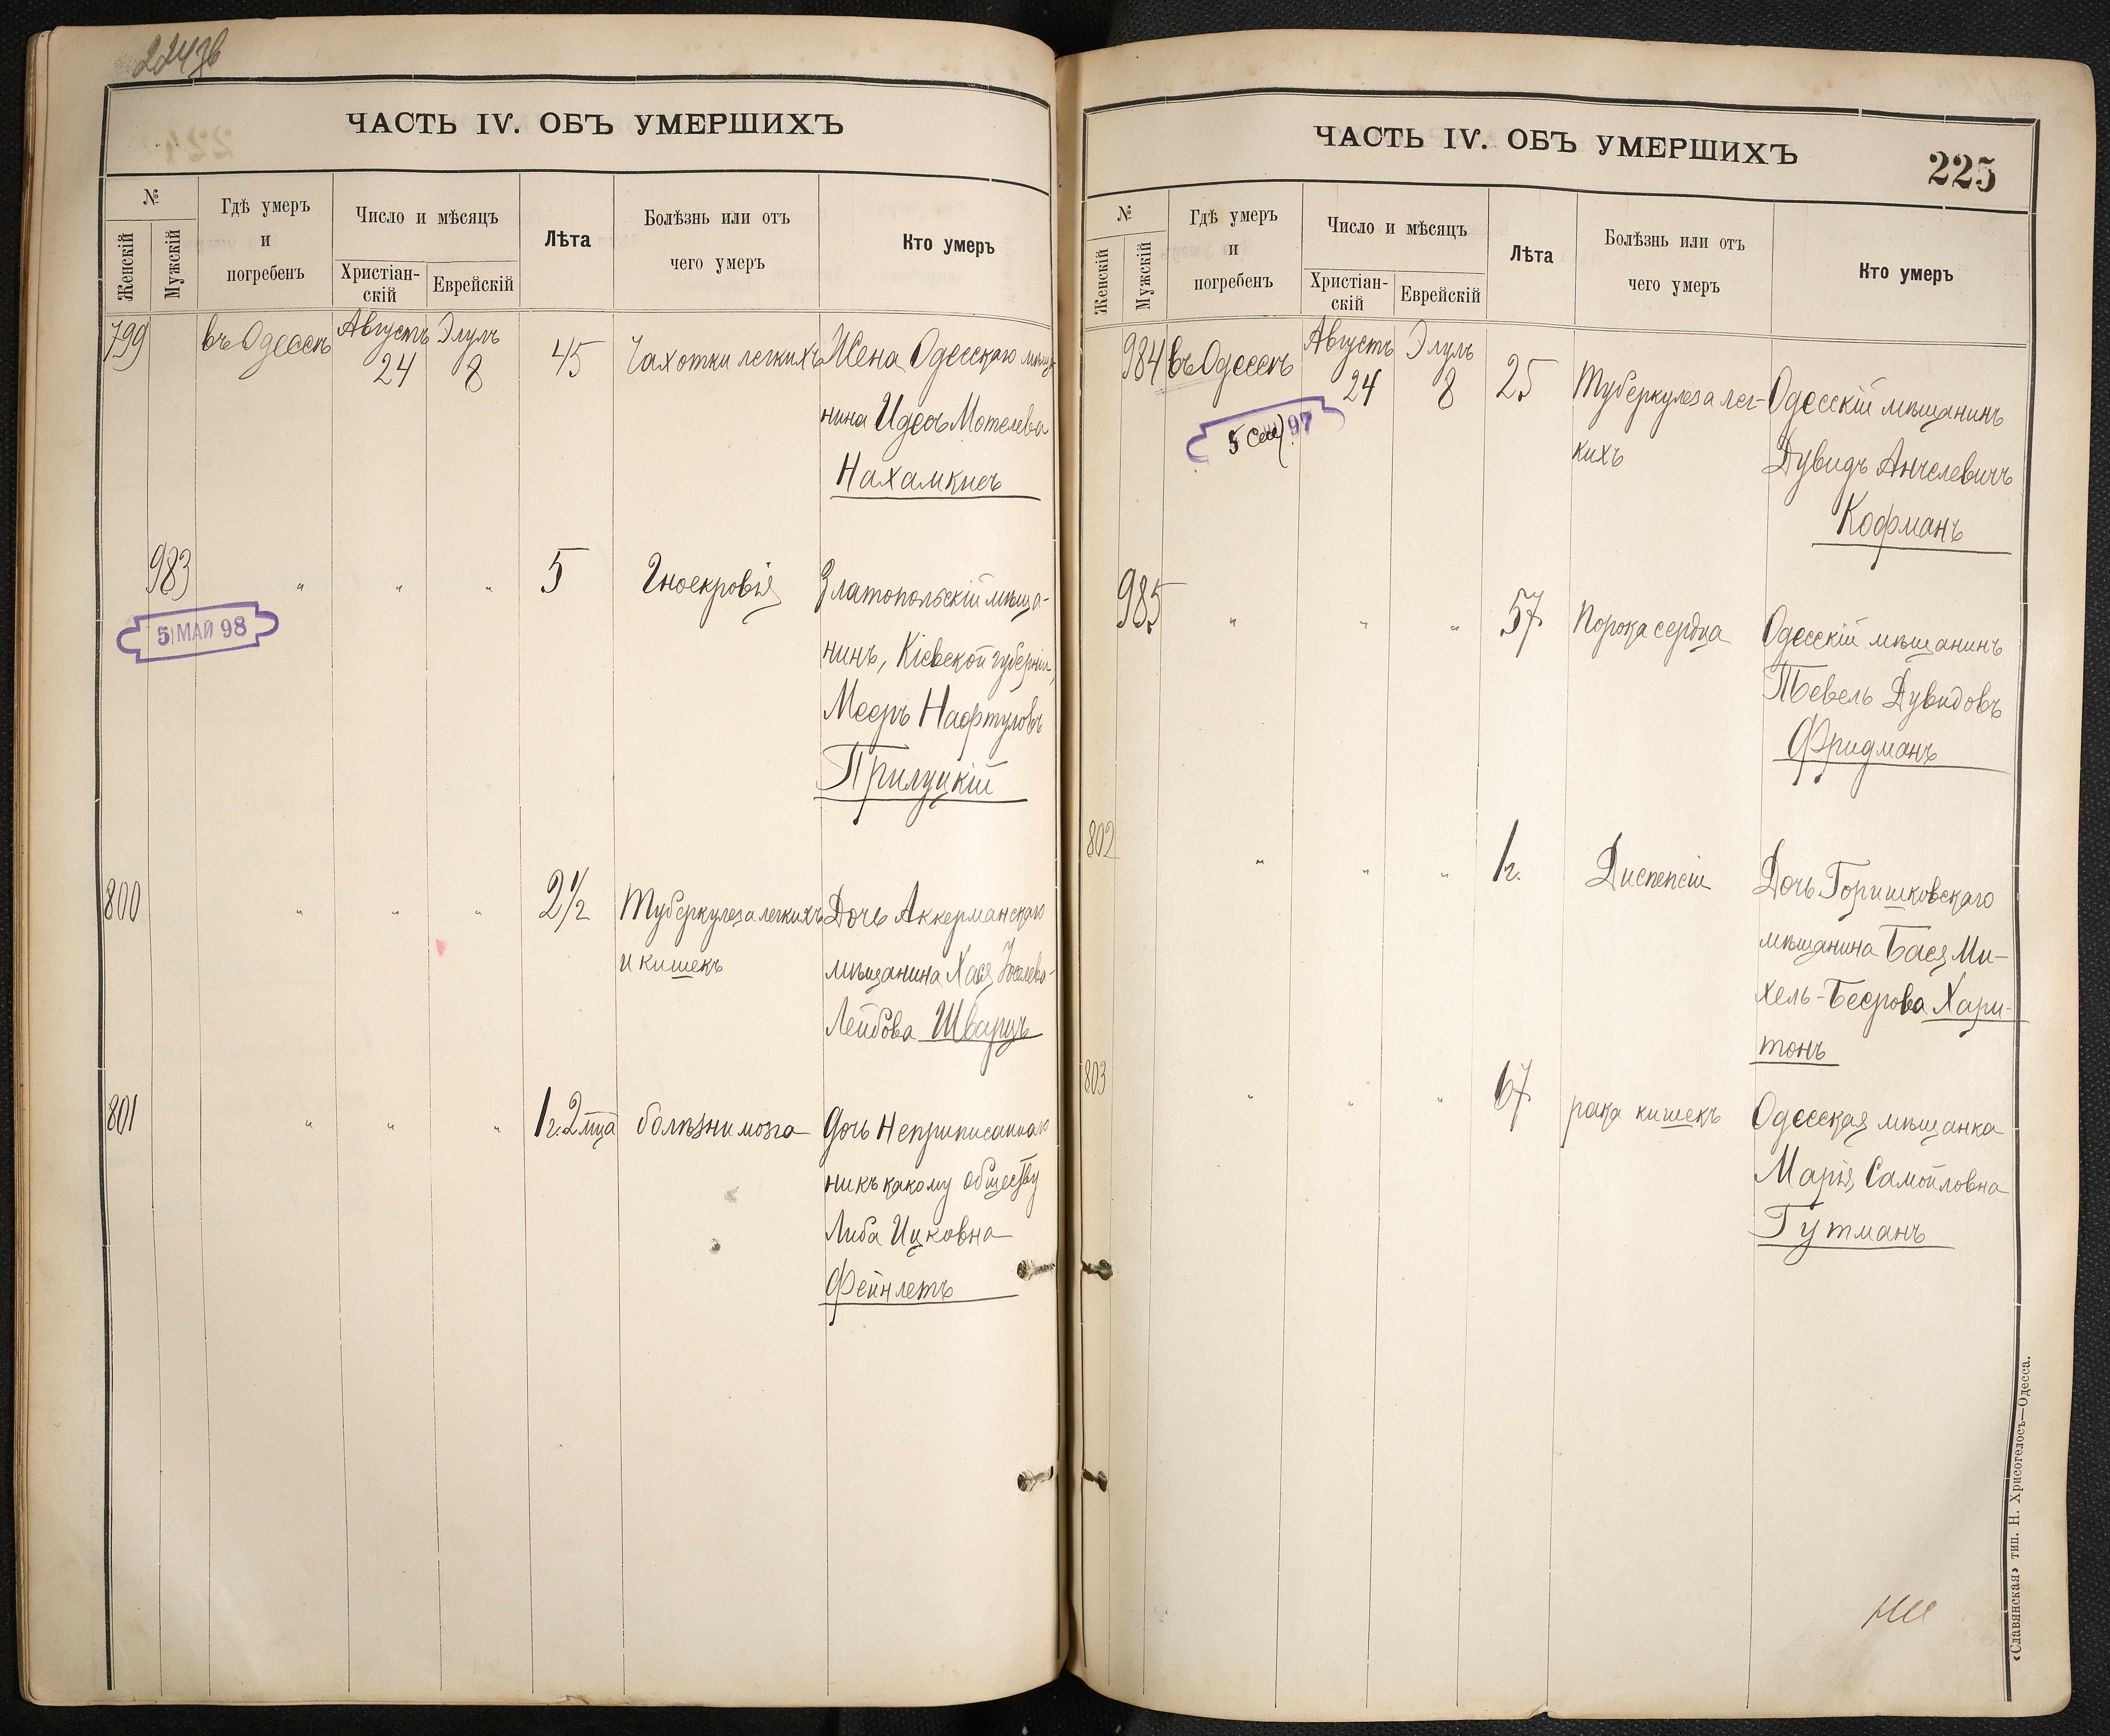 224 об
ЧАСТЬ IV. ОБЪ УМЕРШИХЪ
№
Женскій
Мужскій
Гдѣ умеръ
и
погребенъ
Число и мѣсяцъ
Христіан-
скій
Еврейскій
Лѣта
Болѣзнь или отъ
чего умеръ
Кто умеръ
799 въ Одессѣ Августъ 24 Элулъ 8 45 Чахотки легкихъ Жена Одесскаго мѣща-
нина Идесъ Мотелева
Нахамкисъ
983 " " " 5 Гноекровія Златопольскій мѣща-
5 МАЙ 98
нинъ, Кіевской губерніи,
Мееръ Нафтуловъ
Прилуцкій
800 " " " 2 1/2 Туберкулеза легкихъ Дочь Аккерманскаго
и кишекъ мѣщанина Хася Иоселева-
Лейбова Шварцъ
801 " " " 1 г. 2 мца болѣзни мозга Дочь Неприписаннаго
ни къ какому обществу
Либа Ицковна
Фейнлетъ
ЧАСТЬ IV. ОБЪ УМЕРШИХЪ
225
№
Женскій
Мужскій
Гдѣ умеръ
и
погребенъ
Число и мѣсяцъ
Христіан-
скій
Еврейскій
Лѣта
Болѣзнь или отъ
чего умеръ
Кто умеръ
984 въ Одессѣ Августъ 24 Элулъ 8 25 Туберкулеза лег- Одесскій мѣщанинъ
5 Сен 97
кихъ Дувидъ Анчелевичъ
Кофманъ
985 " " " 57 Порока сердца Одесскій мѣщанинъ
Тевель Дувидовъ
Фридманъ
802 " " " 1 г. Диспепсіи Дочь Горишковскаго
мѣщанина Бася Ми-
хель-Беерова Хари-
тонъ
803 " " " 67 рака кишекъ Одесская мѣщанка
Марія Самойловна
Гутманъ
«Славянская» тип. Н. Хрисогелосъ—Одесса.